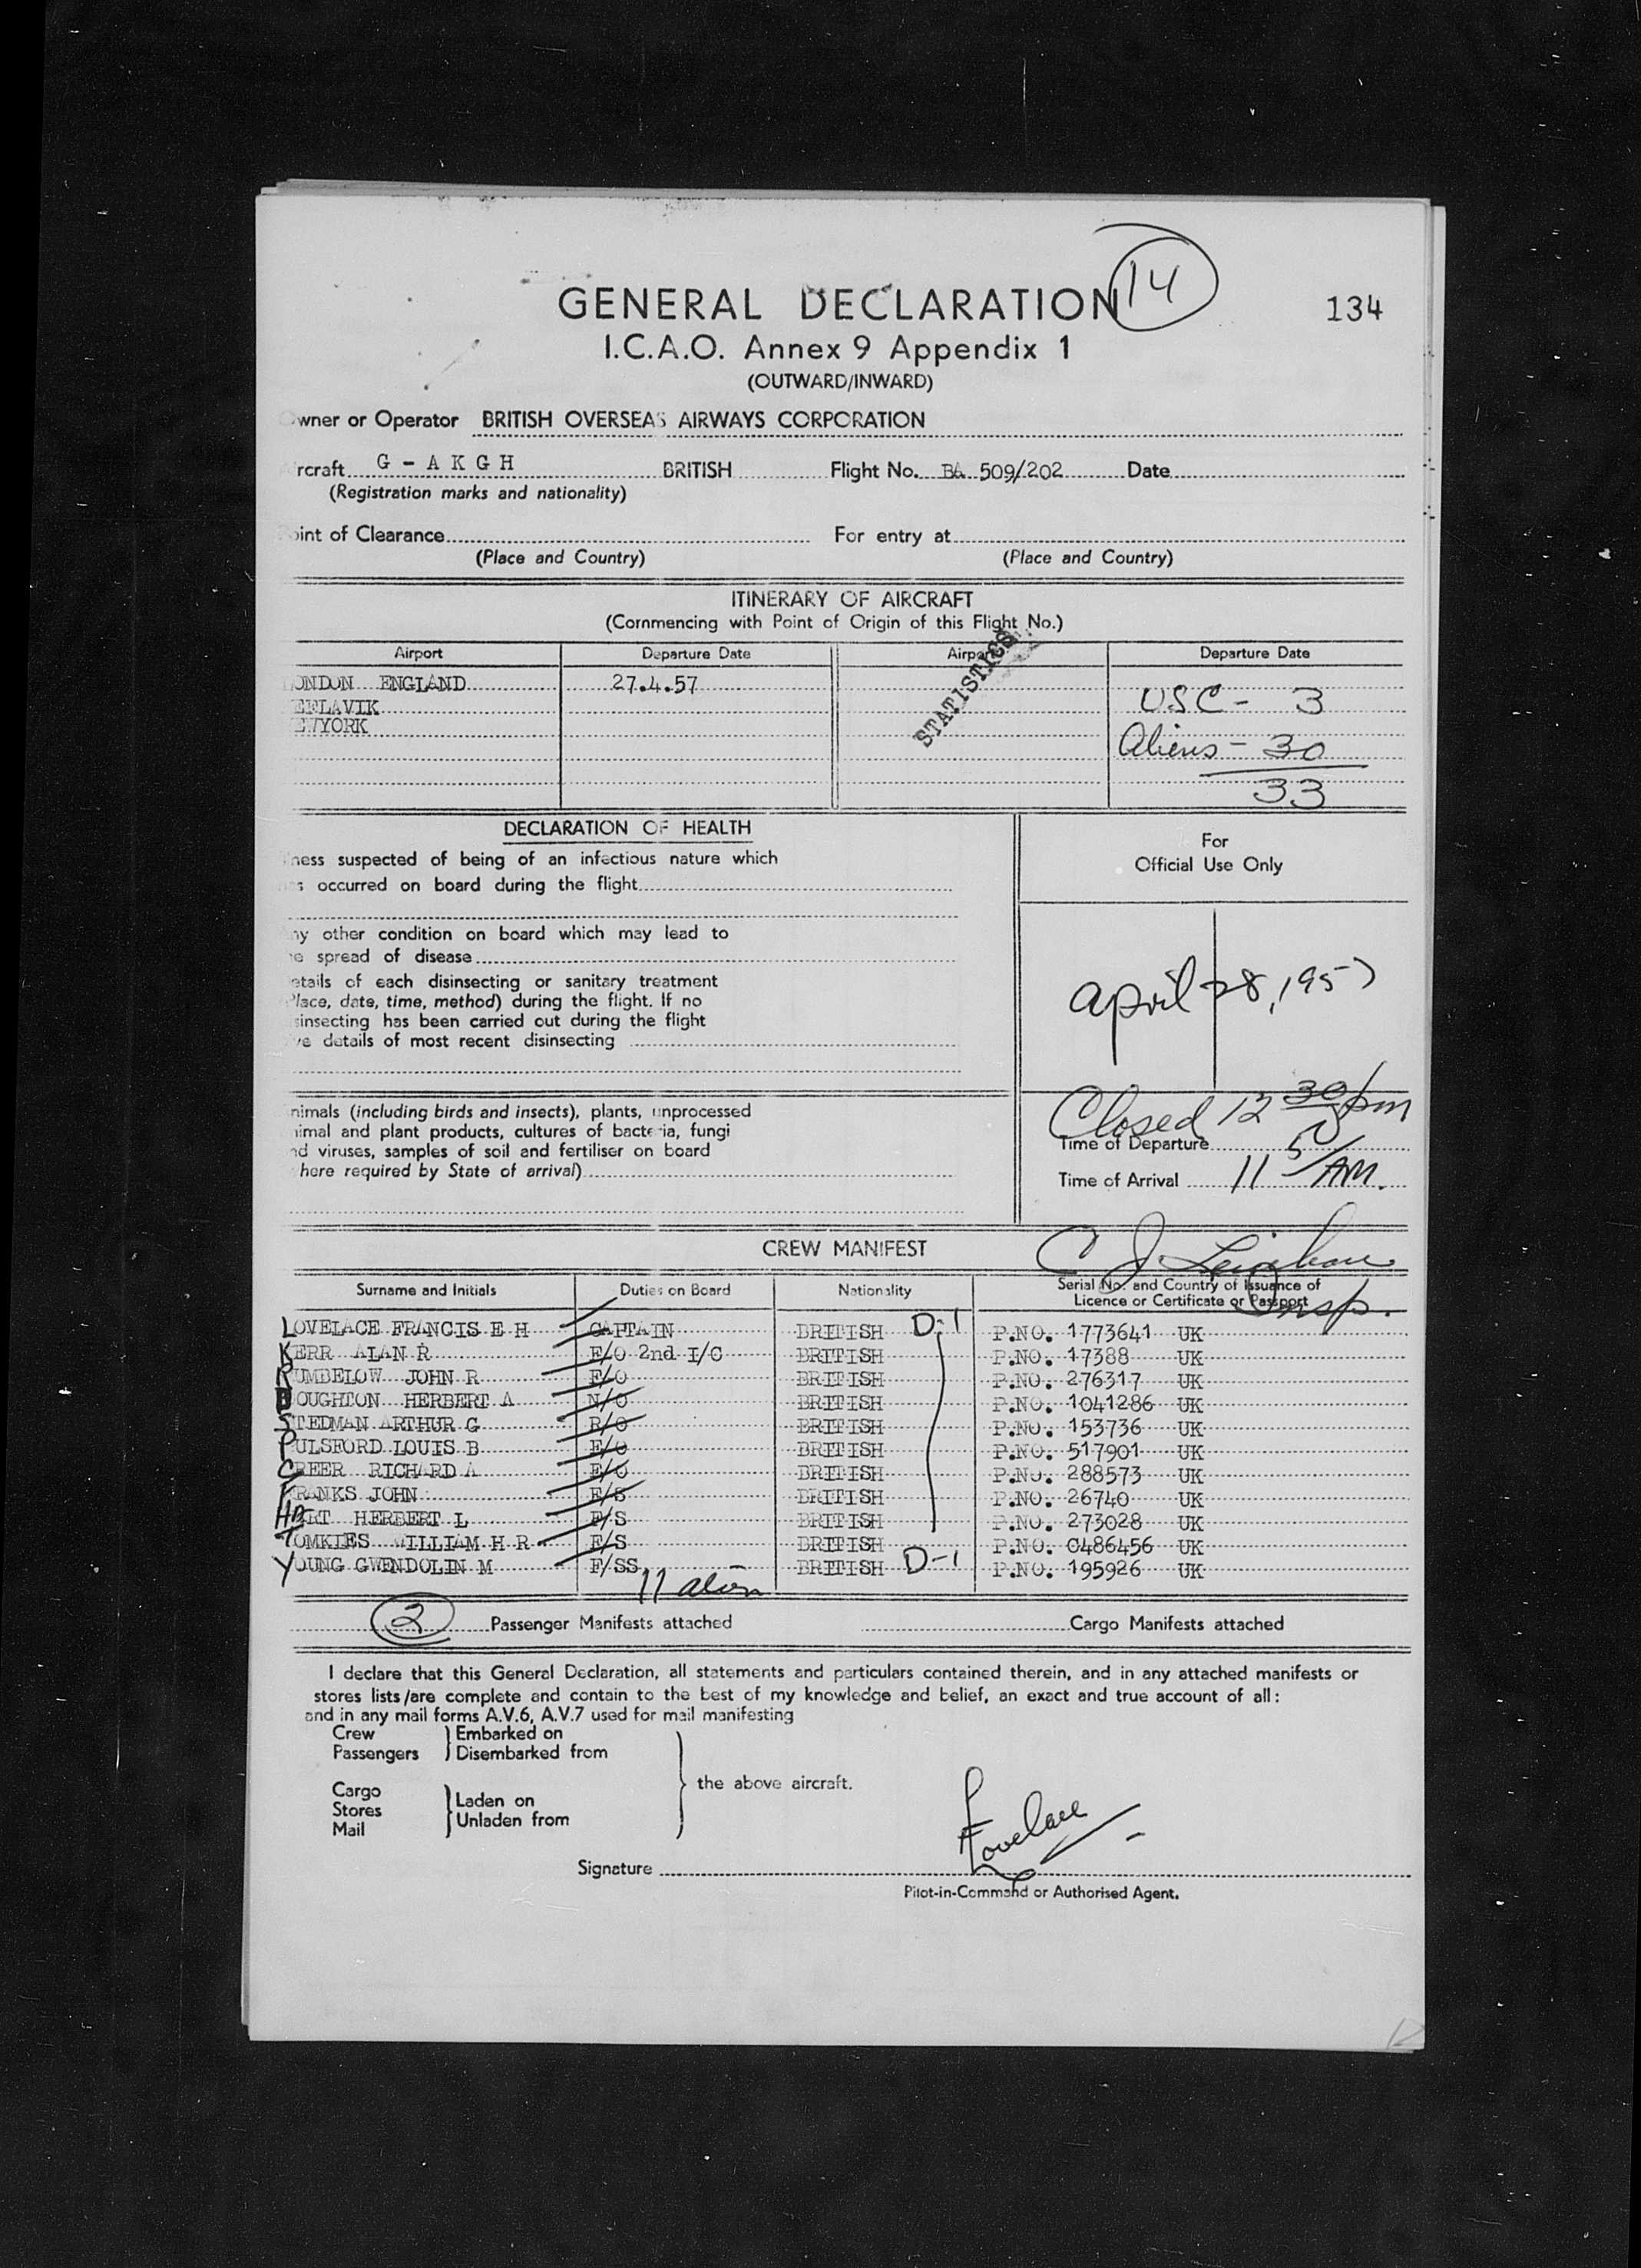 14
GENERAL DECLARATION 134
I.C.A.O. Annex 9 Appendix 1
(OUTWARD/INWARD)
wner or Operator BRITISH OVERSEAS AIRWAYS CORPORATION
rcraft G - A K G H BRITISH Flight No. BA 509/202 Date
(Registration marks and nationality)
oint of Clearance For entry at
(Place and Country) (Place and Country)
ITINERARY OF AIRCRAFT
(Commencing with Point of Origin of this Flight No.)
Airport Departure Date Airport Departure Date
STATISTICS
ONDON ENGLAND 27.4.57 USC - 3
EFLAVIK
EWYORK Aliens - 30
33
DECLARATION OF HEALTH
For
Official Use Only
ness suspected of being of an infectious nature which
s occurred on board during the flight
ny other condition on board which may lead to
e spread of disease
etails of each disinsecting or sanitary treatment
lace, date, time, method) during the flight. If no
sinsecting has been carried out during the flight
ve details of most recent disinsecting
April 28, 1957
nimals (including birds and insects), plants, unprocessed
imal and plant products, cultures of bacteria, fungi
nd viruses, samples of soil and fertiliser on board
here required by State of arrival)
Closed 12 30 pm
Time of Departure
Time of Arrival 11 5 AM.
CREW MANIFEST
C J
Insp.
Surname and Initials Duties on Board Nationality Serial No. and Country of Issuance of
Licence or Certificate or Passport
LOVELACE FRANCIS E H CAPTAIN BRITISH D-1 P.NO. 1773641 UK
KERR ALAN R F/O 2nd I/C BRITISH P.NO. 17388 UK
RUMBELOW JOHN R F/O BRITISH P.NO. 276317 UK
BOUGHTON HERBERT A N/O BRITISH P.NO. 1041286 UK
STEDMAN ARTHUR G R/O BRITISH P.NO. 153736 UK
PULSFORD LOUIS B E/O BRITISH P.NO. 517901 UK
CREER RICHARD A E/O BRITISH P.NO. 288573 UK
FRANKS JOHN F/S BRITISH P.NO. 26740 UK
HART HERBERT L F/S BRITISH P.NO. 273028 UK
TOMKIES WILLIAM H R F/S BRITISH P.NO. C486456 UK
YOUNG GWENDOLIN M F/SS BRITISH D-1 P.NO. 195926 UK
11 alien
2 Passenger Manifests attached Cargo Manifests attached
I declare that this General Declaration, all statements and particulars contained therein, and in any attached manifests or
stores lists/are complete and contain to the best of my knowledge and belief, an exact and true account of all:
and in any mail forms A.V.6, A.V.7 used for mail manifesting
Crew Embarked on
Passengers Disembarked from
the above aircraft.
Cargo
Stores Laden on
Mail Unladen from
Lovelace
Signature
Pilot-in-Command or Authorised Agent.